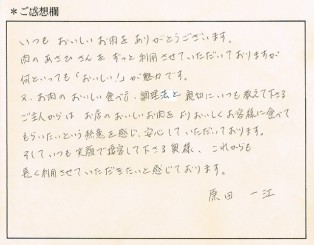 ＊ご感想欄
いつも おいしい お肉を ありがとうございます。
肉の あさひ さんを ずっと利用させていただいておりますが
何といっても「おいしい！」が魅力です。
又、お肉の おいしい食べ方、調理法と 親切に いつも 教えて下さる
ご主人からは お店の おいしいお肉を よりおいしく お客様に食べて
もらいたいという 熱意を感じ、安心して いただいております。
そして いつも 笑顔で 接客して 下さる 奥様、これからも
長く利用させて いただきたいと 感じております。
原田 一江